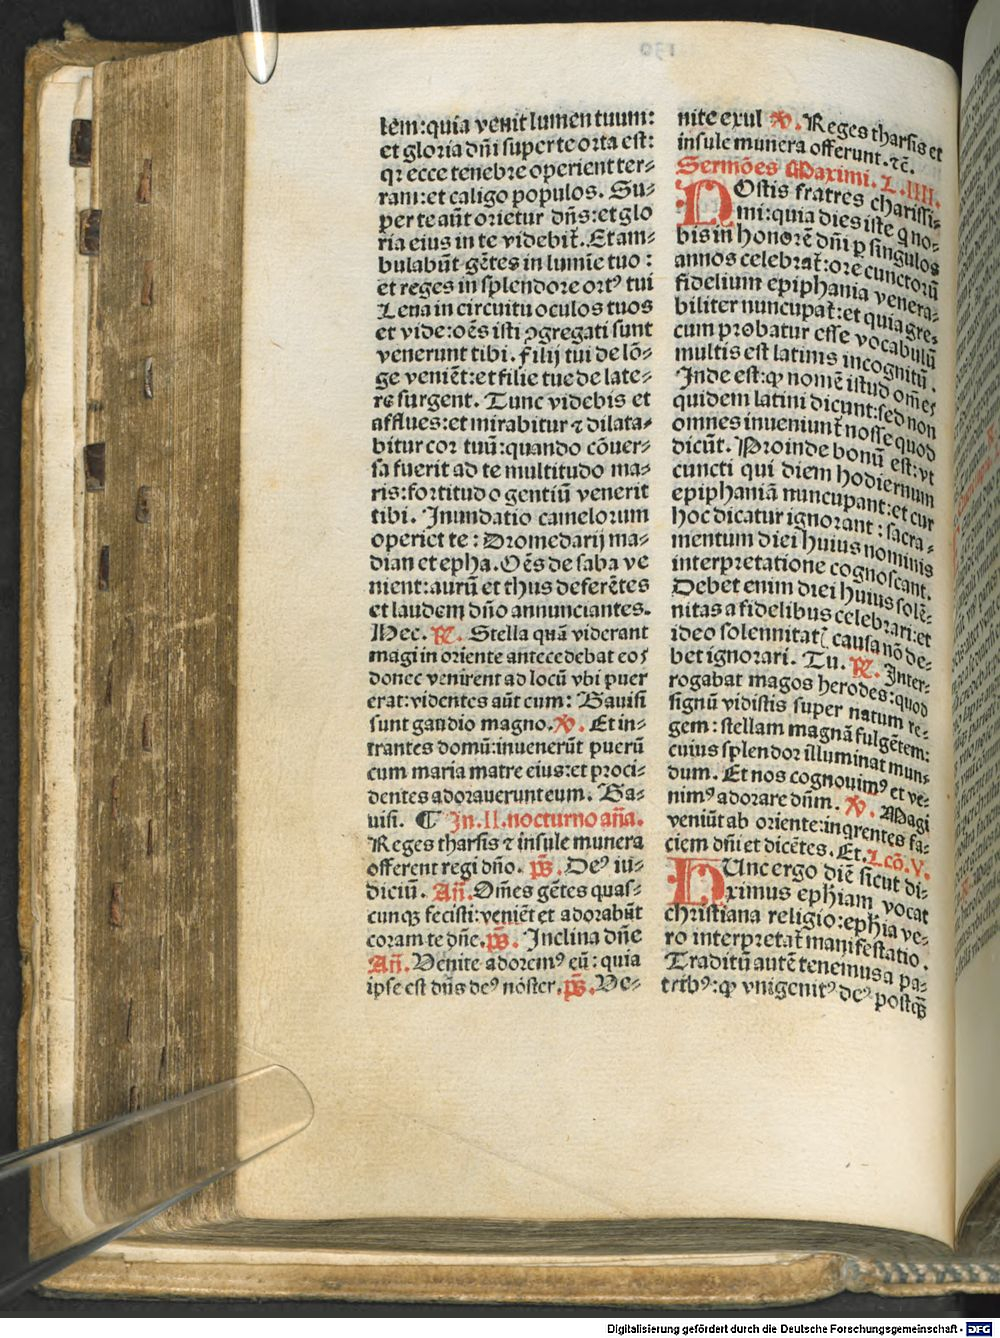 lem:quia venit lumen tuum:
et gloria dñi super te orta est:
qz ecce tenebre operient ter⸗
ram:et caligo populos. Su⸗
per te aũt orietur dñs:et glo
ria eius in te videbit̃. Et am⸗
bulabũt gẽtes in lumie tuo :
et reges in splendore ortꝰ tui
Leua in circuitu oculos tuos
et vide:oẽs isti ꝯgregati sunt
venerunt tibi. filij tui de lõ⸗
ge veniẽt:et filie tue de late⸗
re surgent. Tunc videbis et
afflues:et mirabitur ⁊ dilata⸗
bitur cor tuũ:quando cõuer⸗
sa fuerit ad te multitudo ma⸗
ris:fortitudo gentiũ venerit
tibi. Inundatio camelorum
operiet te : Dromedarij ma⸗
dian et epha. Oẽs de saba ve
nient:aurũ et thus deferẽtes
et laudem dño annunciantes.
Hec. ℟. Stella quã viderant
magi in oriente antecedebat eos
donec venirent ad locũ vbi puer
erat:videntes aũt eum: Gauisi
sunt gaudio magno. ℣. Et in⸗
trantes domũ:inuenerũt puerũ
cum maria matre eius:et proci⸗
dentes adorauerunt eum. Ga⸗
uisi. ¶ In .II. nocturno añã.
Reges tharsis ⁊ insule munera
offerent regi dño. ps̃. Deꝰ iu⸗
diciũ. Añ. Om̃es gẽtes quas⸗
cunqꝫ fecisti:veniẽt et adorabũt
coram te dñe. ps̃. Inclina dñe
Añ. Venite adoremꝰ eũ: quia
ipse est dñs deꝰ noster. ps̃. Ve⸗
nite exul ℣. Reges tharsis et
insule munera offerunt. ⁊c̃.
Sermões Maximi. L. IIII.
NOstis fratres charissi⸗
mi:quia dies iste q̃ no⸗
bis in honorẽ dñi ꝑ singulos
annos celebrat̃:ore cunctorũ
fidelium epiphania venera⸗
biliter nuncupat̃:et quia gre⸗
cum probatur esse vocabulũ
multis est latinis incognitũ.
Inde est:ꝙ nomẽ istud om̃es
quidem latini dicunt:sed non
omnes inueniunt̃ nosse quod
dicũt. Proinde bonũ est:vt
cuncti qui diem hodiernum
epiphaniã nuncupant:et cur
hoc dicatur ignorant : sacra⸗
mentum diei huius nominis
interpretatione cognoscant.
Debet enim diei huius solẽ⸗
nitas a fidelibus celebrari:et
ideo solennitatꝭ causa nõ de⸗
bet ignorari. Tu. ℟. Inter⸗
rogabat magos herodes:quod
signũ vidistis super natum re⸗
gem: stellam magnã fulgẽtem:
cuius splendor illuminat mun⸗
dum. Et nos cognouimꝰ et ve⸗
nimꝰ adorare dñm. ℣. Magi
veniũt ab oriente:inqrentes fa⸗
ciem dñi et dicẽtes. Et. Lcõ. V.
HUnc ergo diẽ sicut di⸗
ximus epħiam vocat
christiana religio:epħia ve⸗
ro interpretat̃ manifestatio.
Traditũ autẽ tenemus a pa⸗
tribꝰ:ꝙ vnigenitꝰ deꝰ postqꝫ
Digitalisierung gefördert durch die Deutsche Forschungsgemeinschaft - DFG